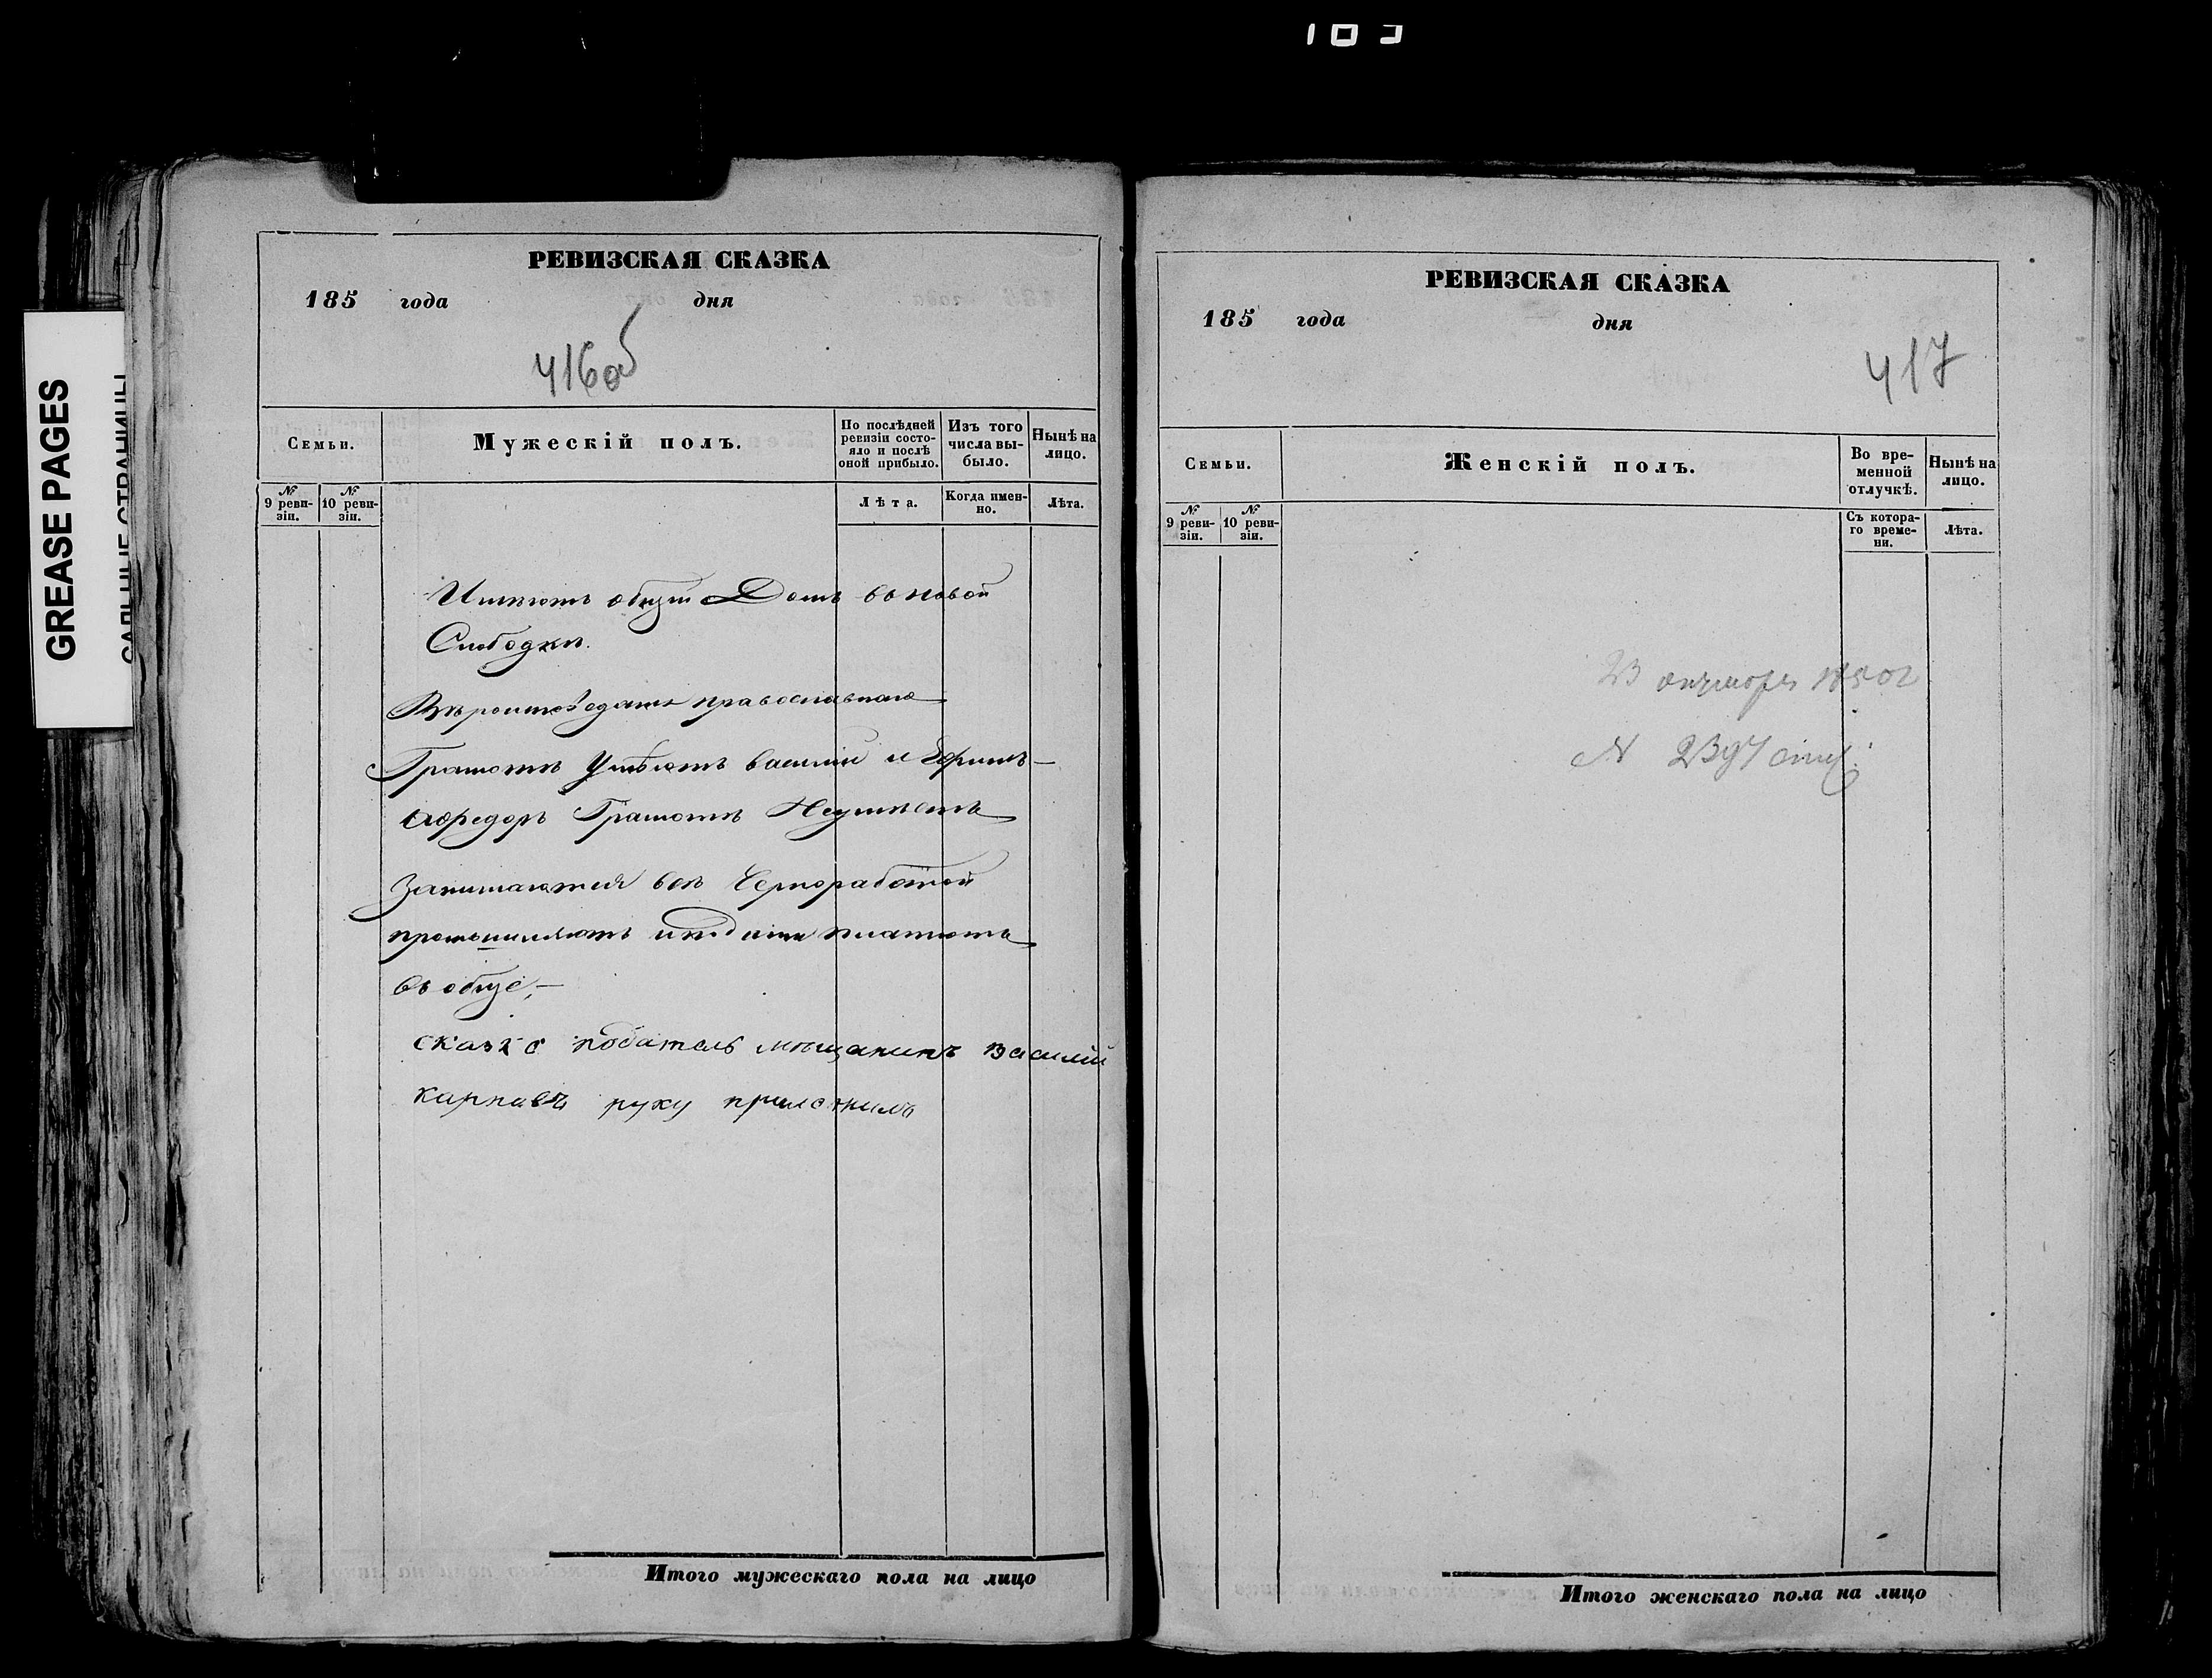 103
GREASE PAGES
САЛЬНЫЕ СТРАНИЦЫ
РЕВИЗСКАЯ СКАЗКА
185 года дня
416об
Семьи.
Мужескій полъ.
По послѣдней ревизіи состояло и послѣ оной прибыло.
Изъ того числа выбыло.
Нынѣ на лицо.
№ 9 ревизіи.
№ 10 ревизіи.
Лѣта.
Когда именно.
Лѣта.
Имѣютъ общій Домъ въ новой
Слободкѣ.
Вѣроисповеданія православнаго
Грамотѣ Умѣютъ василій и Ефимъ—
Афедоръ Грамотѣ Неумѣетъ
Занимаются всѣ Черноработой
промышляютъ иподати платютъ
въ обще,—
сказ податель мѣщанинъ василий
карповъ руку приложилъ
Итого мужескаго пола на лицо
РЕВИЗСКАЯ СКАЗКА
185 года дня
417
Семьи.
Женскій полъ.
Во временной отлучкѣ.
Нынѣ на лицо.
№ 9 ревизіи.
№ 10 ревизіи.
Съ котораго времени.
Лѣта.
23 октября 1850г
№
Итого женскаго пола на лицо